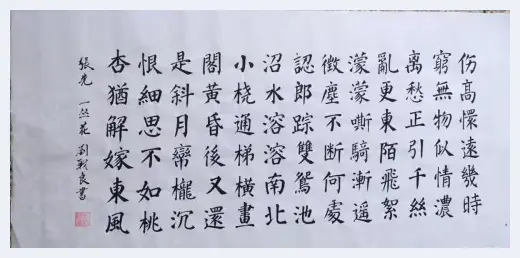 伤高懷遠幾時
窮無物似情濃
离愁正引千絲
亂更東陌飛絮
濛濛嘶騎漸遥
徵塵不断何處
認郎踪雙鴛池
沼水溶溶南北
小桡通梯橫畫
閣黄昏後又還
是斜月帘櫳沉
恨細思不如桃
杏猶解嫁東風
張先 一丛花 刘戰良書